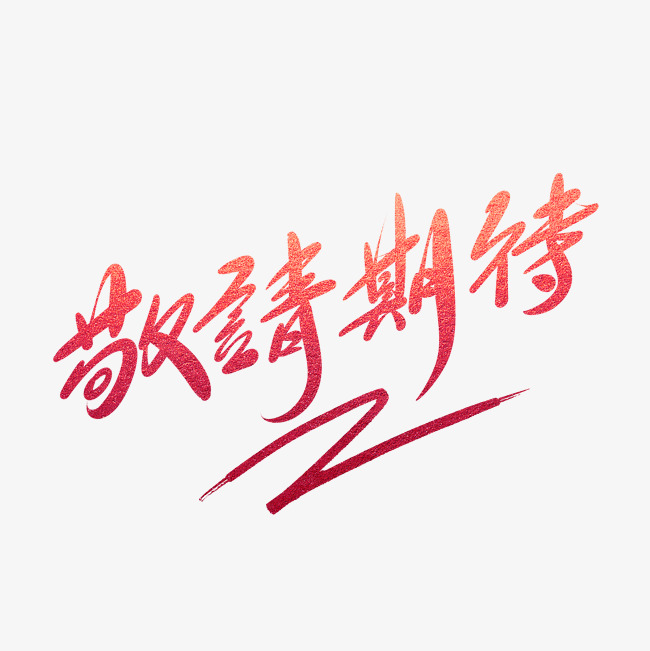 敬請期待